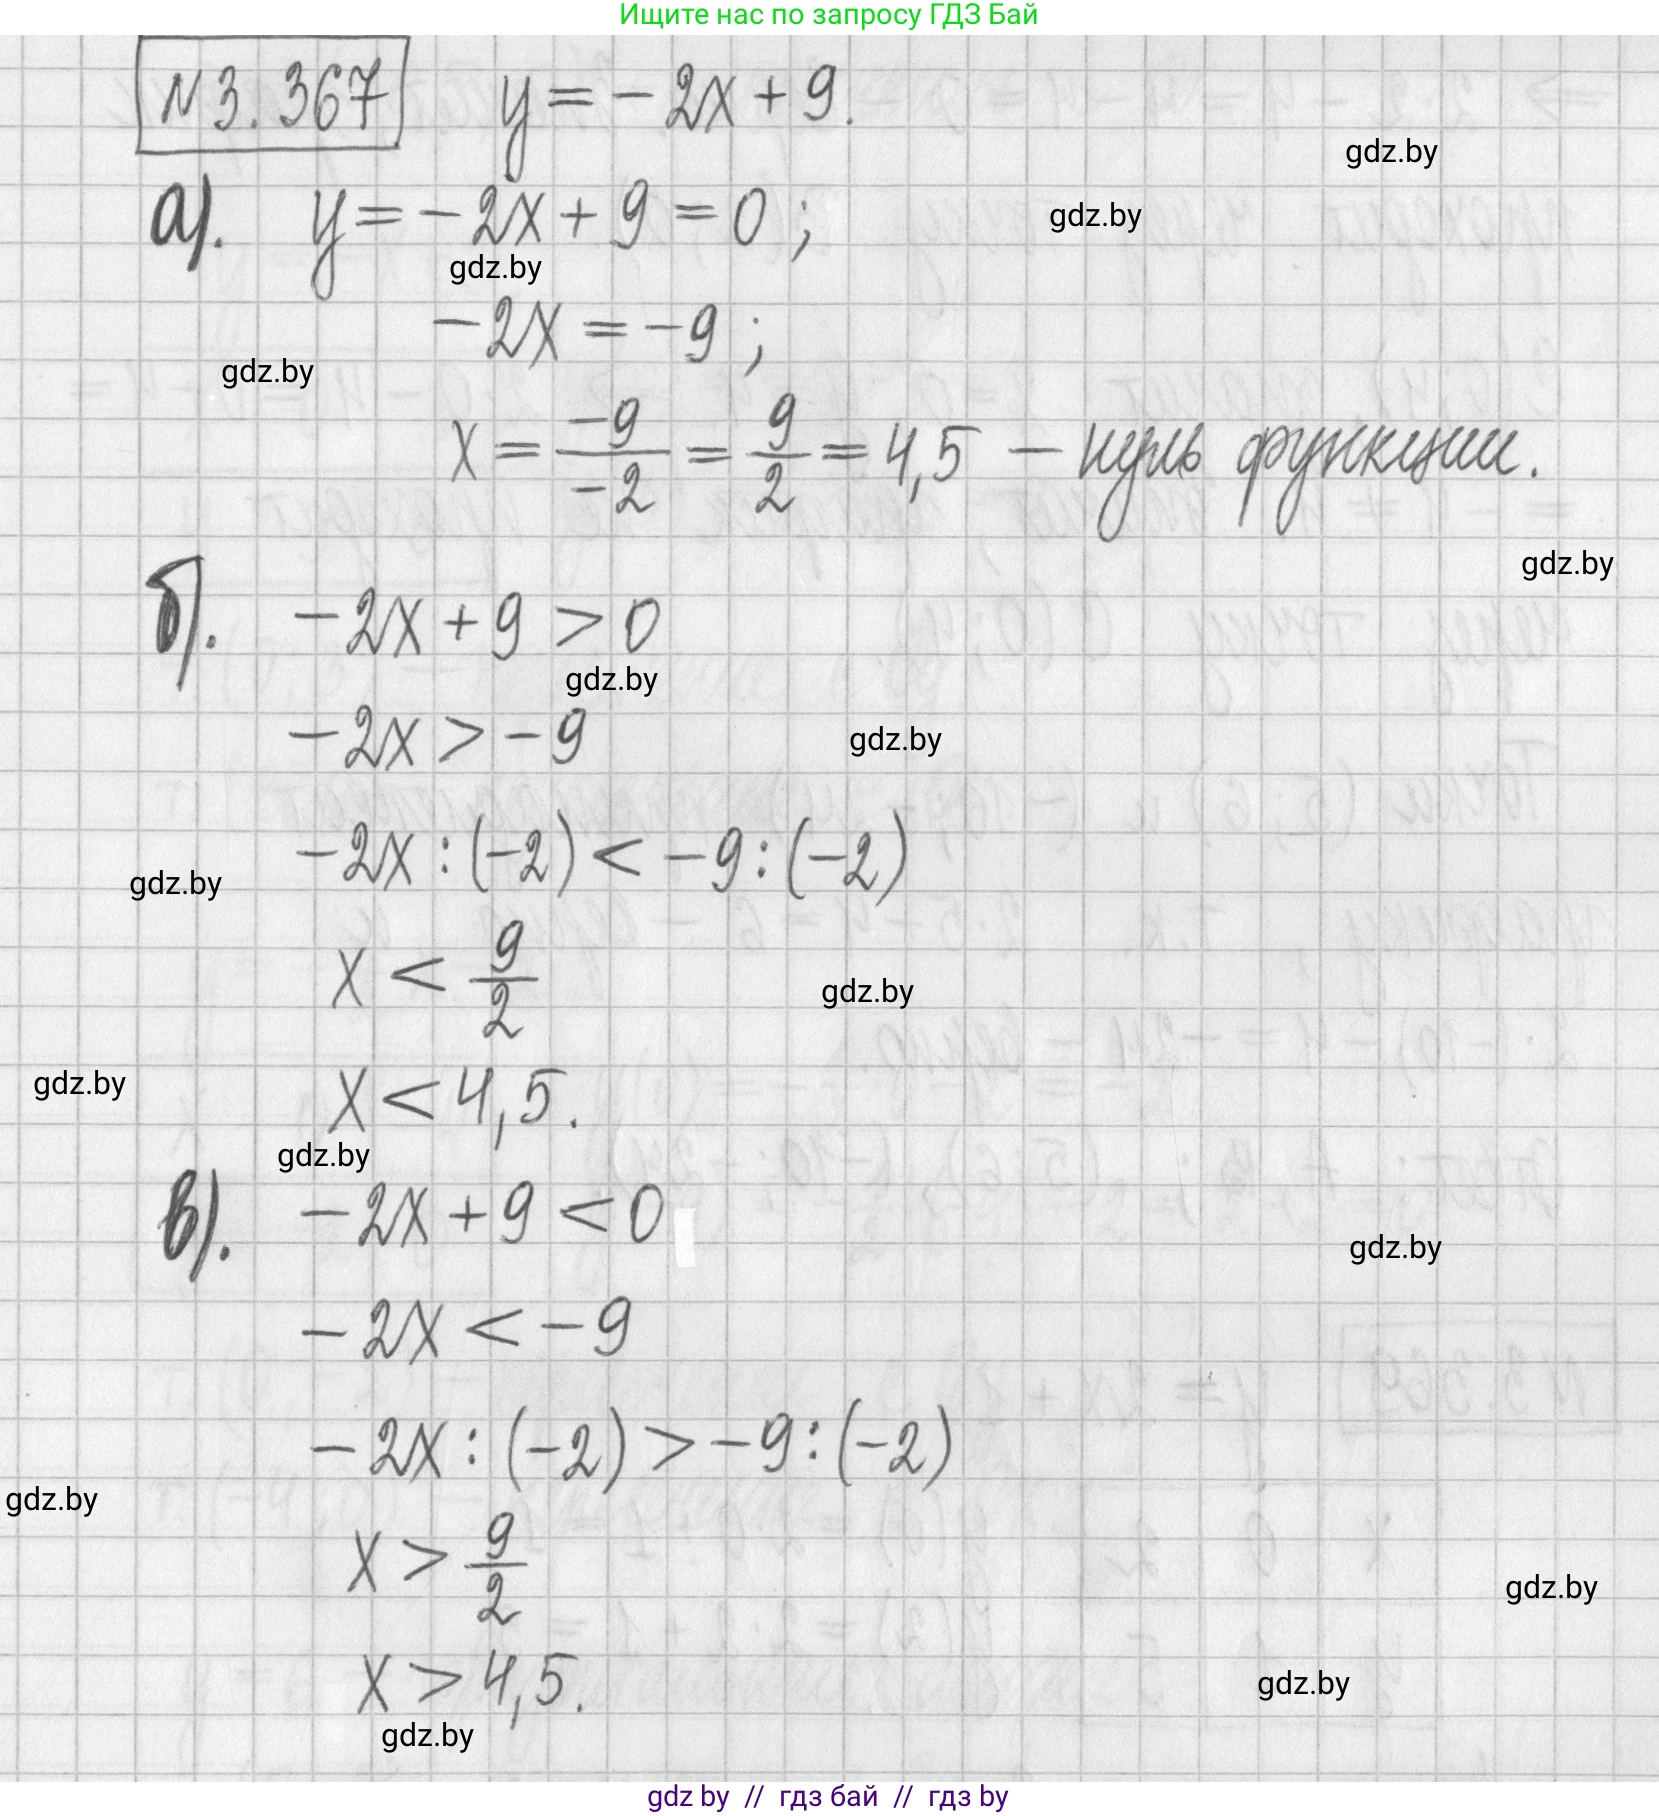 Ищите нас по запросу ГДЗ Бай
№3.367 y = -2x + 9.
gdz.by
а). y = -2x + 9 = 0 ;
gdz.by
gdz.by
-2x = -9 ;
gdz.by
x = -9/-2 = 9/2 = 4,5 — нуль функции.
gdz.by
б). -2x + 9 > 0
gdz.by
-2x > -9
gdz.by
-2x : (-2) < -9 : (-2)
gdz.by
x < 9/2
gdz.by
x < 4,5.
gdz.by
gdz.by
в). -2x + 9 < 0
gdz.by
-2x < -9
-2x : (-2) > -9 : (-2)
gdz.by
x > 9/2
gdz.by
x > 4,5.
gdz.by
gdz.by
gdz by // гдз бай // гдз by